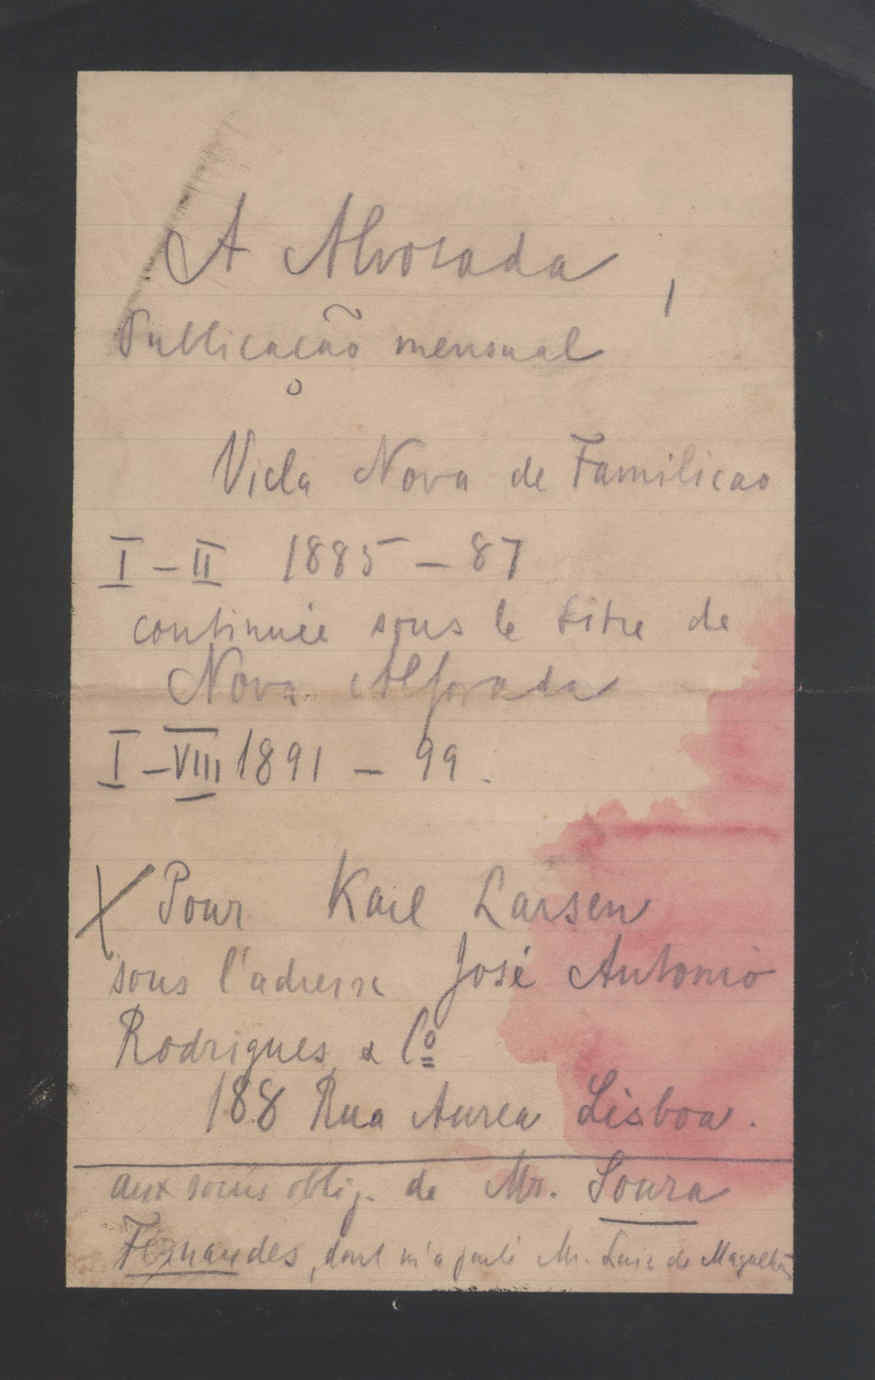 A Alvorada,
Publicação mensual
Vida Nova de Familicao
I – II 1885 – 87
continuée sous le titre de
Nova Alforada
I – VIII 1891 – 99.
X Pour Karl Larsen
sous l'adresse José Antonio
Rodrigues & Cº
188 Rua Aurea Lisboa.
aux soins oblig. de Mr. Souza
Fernandes, dont m'a parlé Mr. Luiz de Magalhães